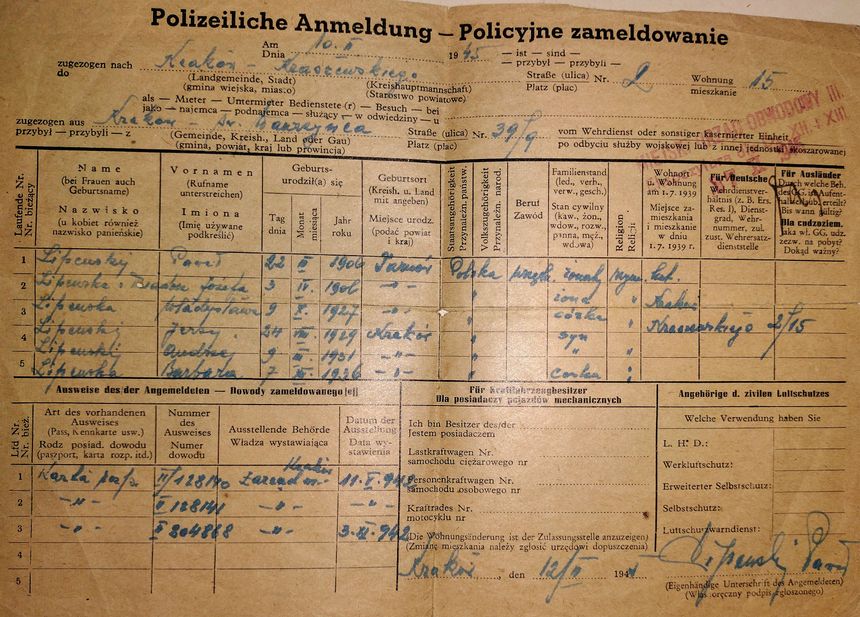 Polizeiliche Anmeldung – Policyjne zameldowanie
Am
Dnia 10. II. 1945 — ist — sind —
— przybył — przybyli —
zugezogen nach
do Kraków - Kraszewskiego Straße (ulica) Nr. 2 Wohnung 15
(Landgemeinde, Stadt) (Kreishauptmannschaft) Platz (plac) mieszkanie
(gmina wiejska, miasto) (Starostwo powiatowe)
als — Mieter — Untermieter Bedienstete (r) — Besuch — bei
jako — najemca — podnajemca — służący — w odwiedziny — u
zugezogen aus Kraków - św. Wawrzyńca Straße (ulica) Nr. 39/9 vom Wehrdienst oder sonstiger kasernierter Einheit
przybył — przybyli — z (Gemeinde, Kreish., Land oder Gau) Platz (plac) po odbyciu służby wojskowej lub z innej jednostki skoszarowanej
(gmina, powiat, kraj lub prowincja)
OBWODOWY III.
Laufende Nr.
Nr. bieżący
Name
(bei Frauen auch
Geburtsname)
Nazwisko
(u kobiet również
nazwisko panieńskie)
Vornamen
(Rufname
unterstreichen)
Imiona
(Imię używane
podkreślić)
Geburts-
urodził(a) się
Tag
dnia
Monat
miesiąca
Jahr
roku
Geburtsort
(Kreish. u. Land
mit angeben)
Miejsce urodz.
(podać powiat
i kraj)
Staatsangehörigkeit
Przynależn. państw.
Volkszugehörigkeit
Przynależn. narod.
Beruf
Zawód
Familienstand
(led., verh.,
verw., gesch.)
Stan cywilny
(kaw., żon.,
wdow., rozw.,
panna, męż.,
wdowa)
Religion
Religia
Wohnort
u. Wohnung
am 1.7. 1939
Miejsce za-
mieszkania
i mieszkanie
w dniu
1. 7. 1939 r.
Für Deutsche
Wehrdienstver-
hältnis (z. B. Ers.
Res. I), Dienst-
grad, Wehr-
nummer, zul.
zust. Wehrersatz-
dienststelle
Für Ausländer
Durch welche Beh.
d. GG. in Aufent-
halt erlaubt, erteilt?
Bis wann gültig?
Dla cudzoziem.
Jaka wł. GG. udz.
zezw. na pobyt?
Dokąd ważny?
1 Lipenskij Paweł 22 II 1906 Polska żonaty rzym. kat.
2 Lipenska Józefa 3 IV. 1906 -"- " żona " Kraków
3 Lipenska Władysława 9 X. 1927 -"- " córka " Kraszewskiego 2/15
4 Lipenskij Jerzy 24 1929 Kraków " syn "
Lipenskij Andrzej 9 1931 -"- " " "
5 Lipenska Barbara 7 1936 -"- " córka "
Ausweise des der Angemeldeten — Dowody zameldowanego(ej)
Lfd Nr.
Nr. bież.
Art des vorhandenen
Ausweises
(Pass, Kennkarte usw.)
Rodz posiad. dowodu
(paszport, karta rozp. itd.)
Nummer
des
Ausweises
Numer
dowodu
Ausstellende Behörde
Władza wystawiająca
Datum der
Ausstellung
Data wy-
stawienia
1 Karta rozp. II/128140 Zarząd m. Kraków 11. V. 942
2 -"- II 128141 -"- -"-
3 -"- II 204868 -"- 3. XI. 942
4
5
Für Kraftfahrzeugbesitzer
Dla posiadaczy pojazdów mechanicznych
Ich bin Besitzer des/der
Jestem posiadaczem
Lastkraftwagen Nr.
samochodu ciężarowego nr
Personenkraftwagen Nr.
samochodu osobowego nr
Kraftrades Nr.
motocyklu nr
(Die Wohnungsänderung ist der Zulassungsstelle anzuzeigen)
(Zmianę mieszkania należy zgłosić urzędowi dopuszczenia)
Kraków, den 12/II 194
Angehörige d. zivilen Luftschutzes
Welche Verwendung haben Sie
L. H. D.:
Werkluftschutz:
Erweiterter Selbstschutz:
Selbstschutz:
Luftschutzwarndienst:
Lipenskij Paweł
(Eigenhändige Unterschrift des Angemeldeten)
(Własnoręczny podpis zgłoszonego)